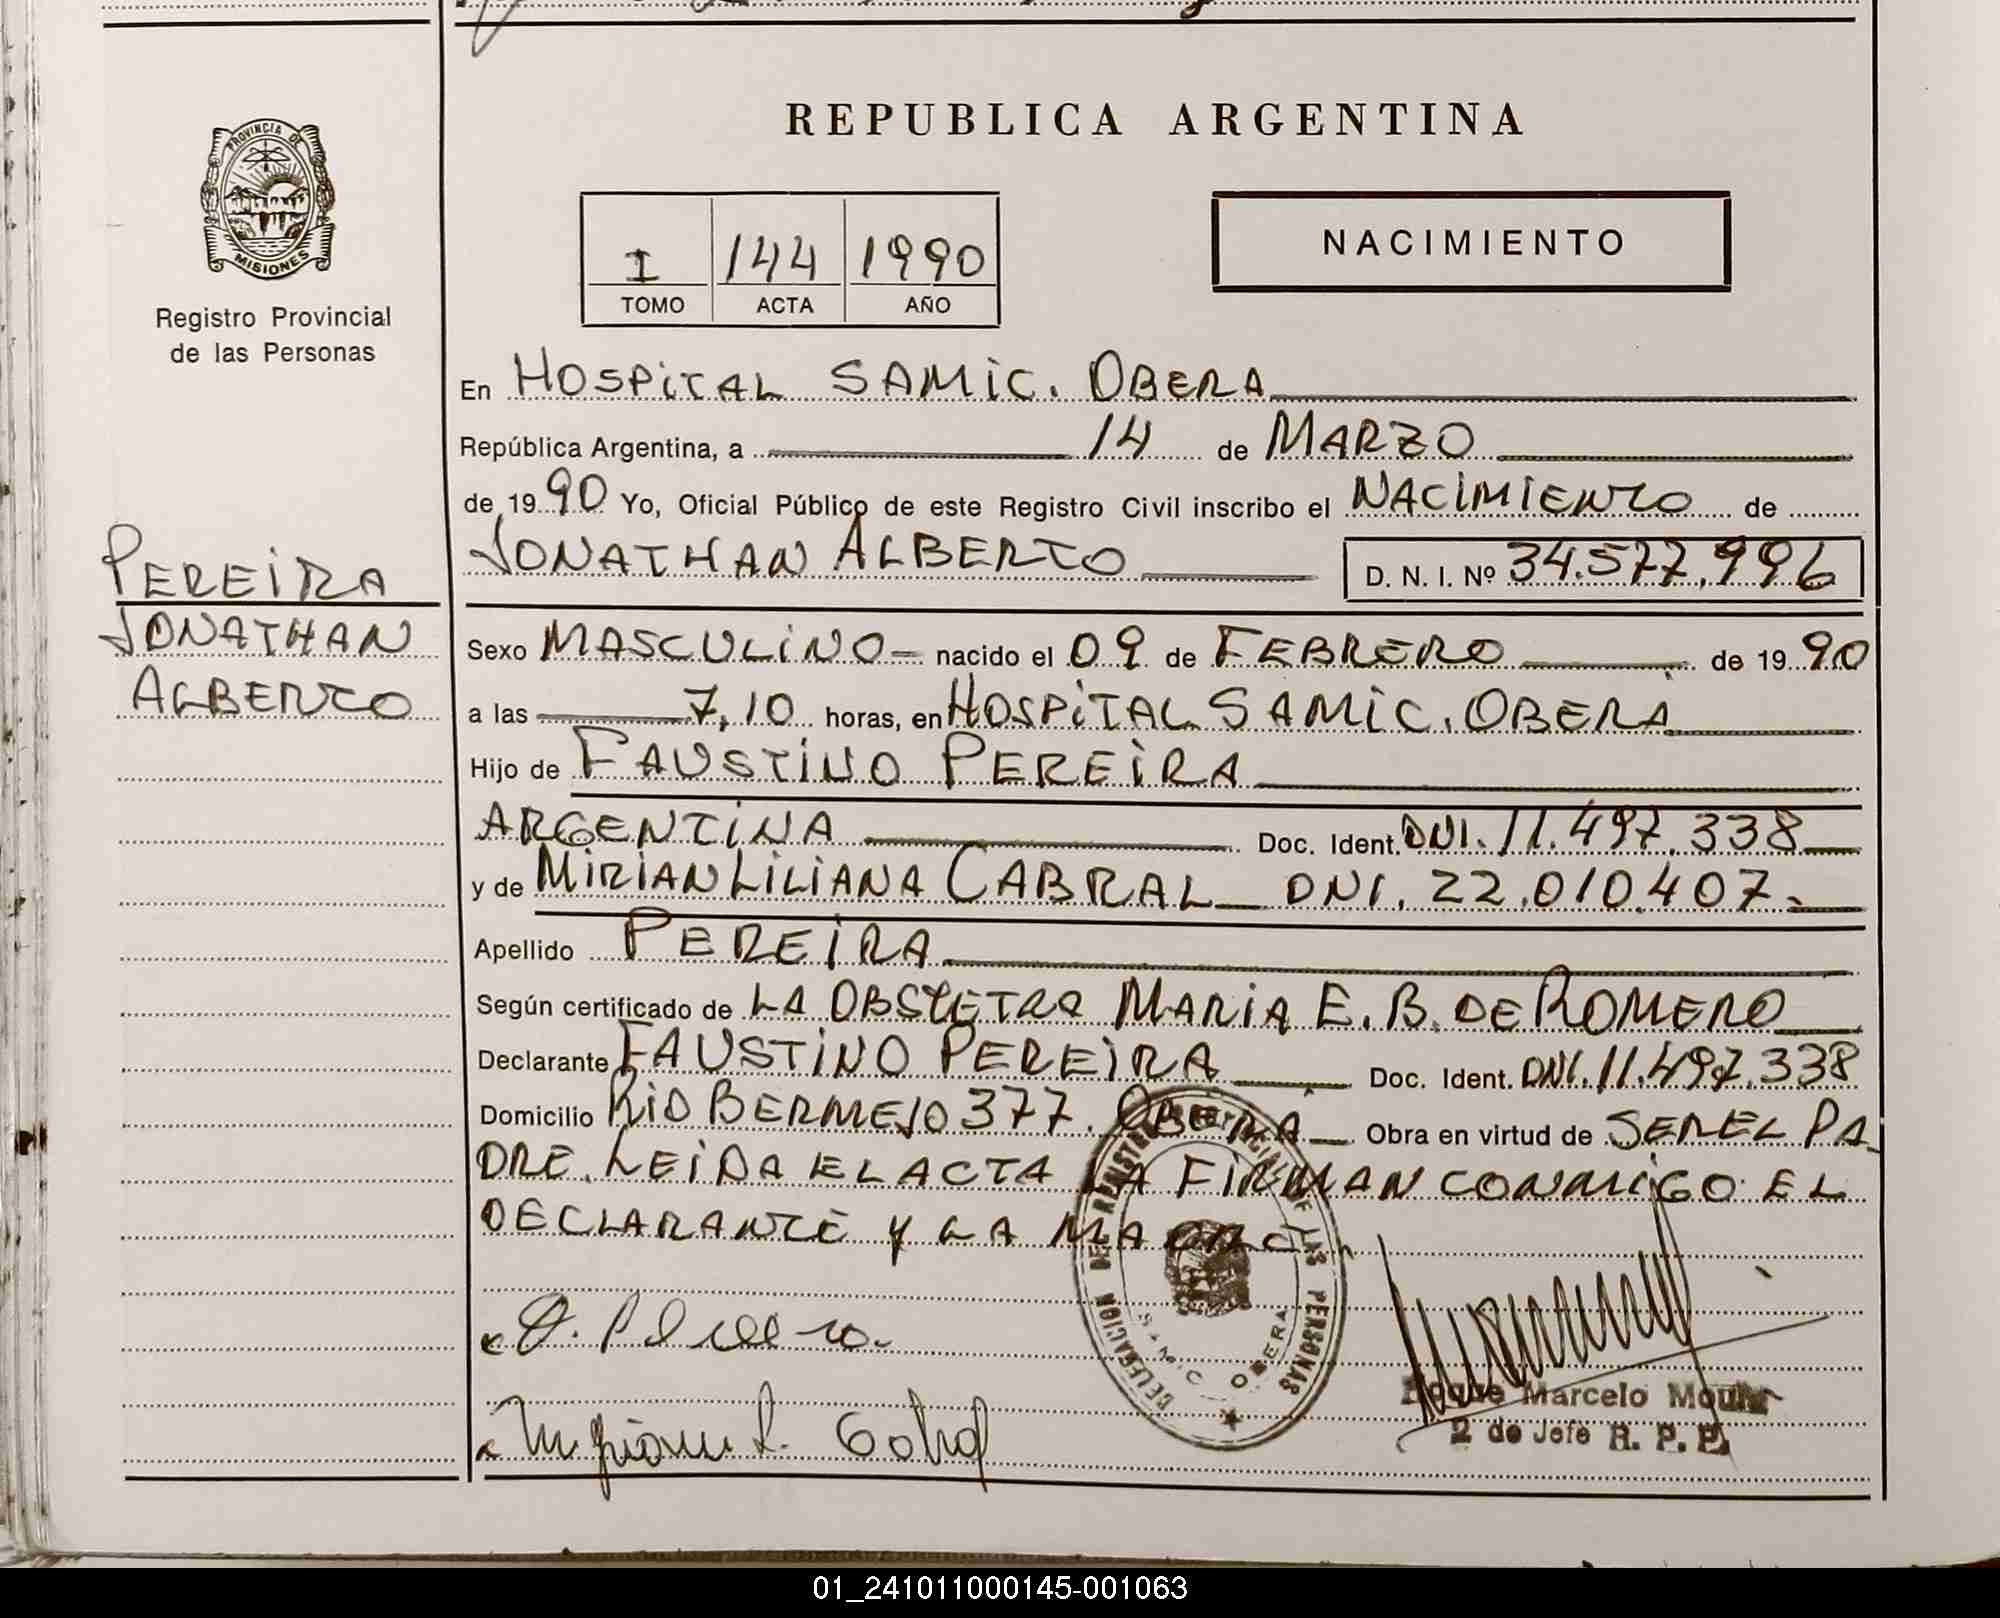 REPUBLICA ARGENTINA
PROVINCIA DE
MISIONES
Registro Provincial
de las Personas
NACIMIENTO
I 144 1990
TOMO ACTA AÑO
En HOSPITAL SAMIC. OBERA
República Argentina, a 14 de MARZO
de 1990 Yo, Oficial Público de este Registro Civil inscribo el NACIMIENTO de
JONATHAN ALBERTO D. N. I. Nº 34.577.996
PEREIRA
JONATHAN
ALBERTO
Sexo MASCULINO nacido el 09 de FEBRERO de 1990
a las 7,10 horas, en HOSPITAL SAMIC. OBERA
Hijo de FAUSTINO PEREIRA
ARGENTINA Doc. Ident. DNI. 11.497.338
y de MIRIAN LILIANA CABRAL DNI. 22.010.407.
Apellido PEREIRA
Según certificado de LA OBSTETRA MARIA E. B. DE ROMERO
Declarante FAUSTINO PEREIRA Doc. Ident. DNI. 11.497.338
Domicilio RIO BERMEJO 377. OBERA Obra en virtud de SER EL PA
DRE. LEIDA EL ACTA LA FIRMAN CONMIGO EL
DECLARANTE Y LA MADRE
DELEGACION DEL REGISTRO PROVINCIAL DE LAS PERSONAS
SAMIC OBERA
Roque Marcelo
2 do Jefe R. P. P.
01_241011000145-001063